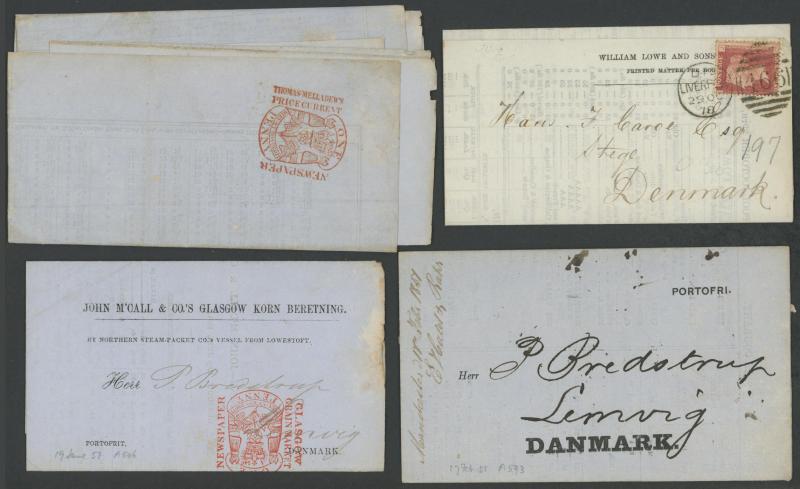 THOMAS MELLADEW'S
PRICE CURRENT
ONE
PENNY
NEWSPAPER
WILLIAM LOWE AND SONS
PRINTED MATTER PER BOOK
LIVERPOOL
29 OC
78
466
Hans J. Caroe Esq
Stege
Denmark.
197
JOHN M'CALL & CO.'S GLASGOW KORN BERETNING.
BY NORTHERN STEAM-PACKET CO.'S VESSEL FROM LOWESTOFT.
Herr P. Bredstrup
Lemvig
PORTOFRIT.
DANMARK.
NEWSPAPER
PENNY
GLASGOW
GRAIN MARKET
19 June 52 A546
PORTOFRI.
Herr P. Bredstrup
Lemvig
DANMARK.
17 Feb 51 A593